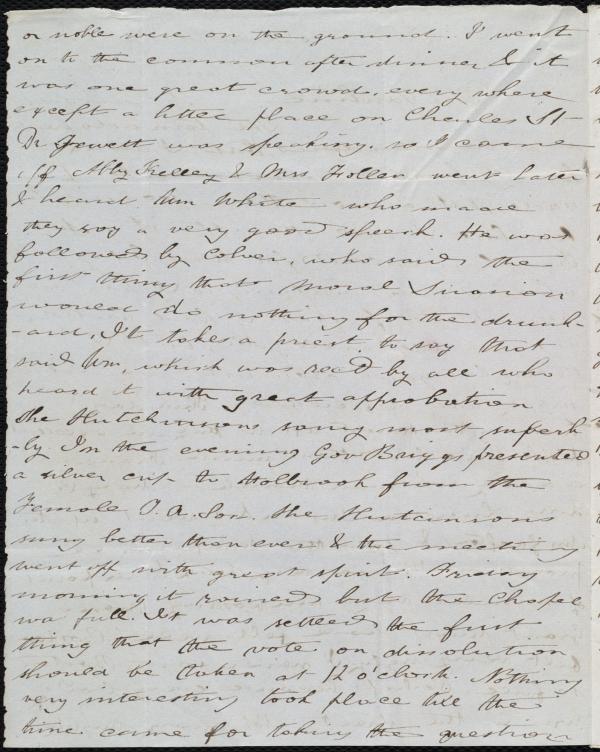 or noble were on the ground. I went
on to the common after dinner & it
was one great crowd, every where
except a little place on Charles St-
Dr Jewett was speaking. so I came
off Abby Kelley & Mrs Follen went later
& heard Wm White who made
they say a very good speech. He was
followed by Colver, who said the
first thing that Moral Suasion
would do nothing for the drunk-
-ard, It takes a priest to say that
said Wm, which was recd by all who
heard it with great approbation
The Hutchinsons sang most superb
-ly In the evening Gov Briggs presented
a silver cup to Holbrook from the
Female T. A. Soc. The Hutcinsons
sung better than ever & the meeting
went off with great spirit. Friday
morning it rained but the Chapel
wa full. It was settled the first
thing that the vote on dissolution
should be taken at 12 o'clock. Nothing
very interesting took place till the
time came for taking the question